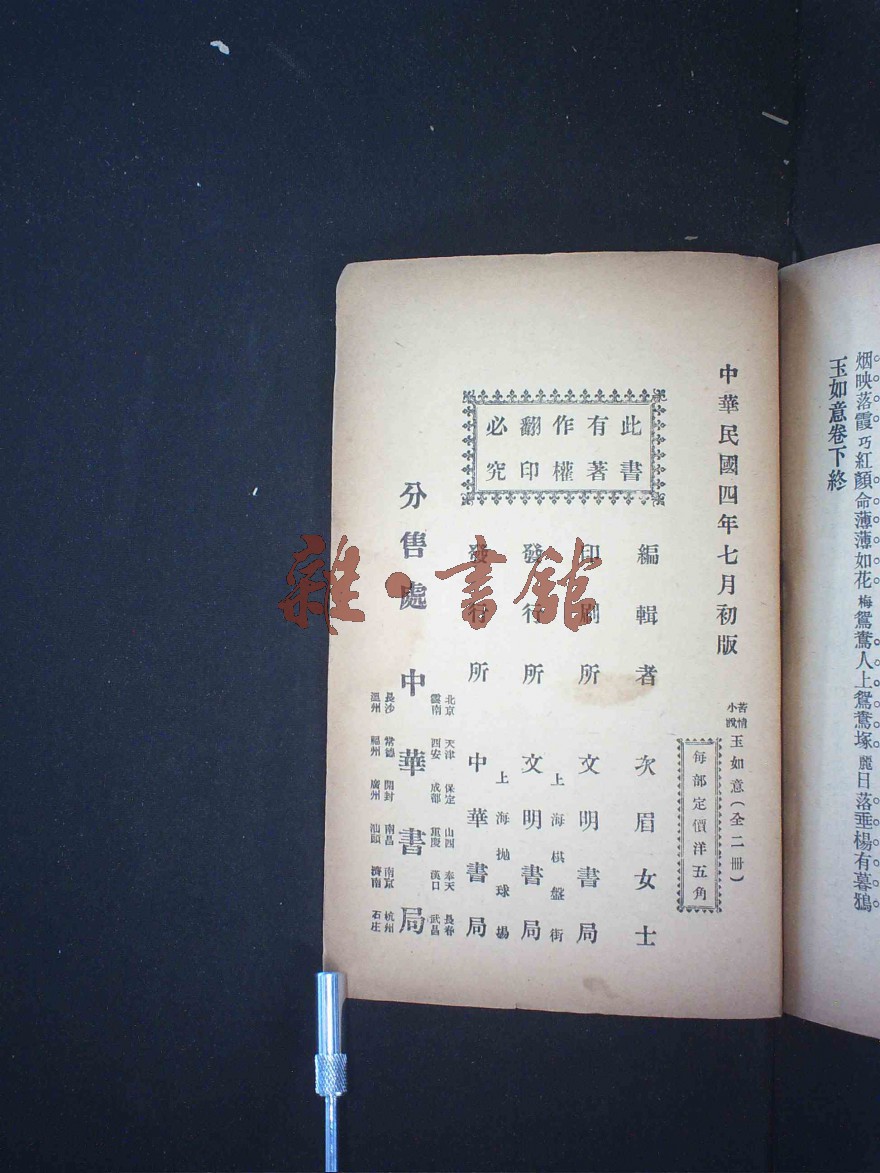 烟映落霞巧紅顏命薄薄如花梅鴛鴦人上鴛鴦塚麗日落垂楊有暮鴉
玉如意卷下終
中華民國四年七月初版
苦情小說 玉如意（全二冊）
每部定價洋五角
此書有著作權翻印必究
編輯者 次眉女士
印刷所 文明書局
上海棋盤街
發行所 文明書局
上海拋球場
發行所 中華書局
北京 天津 保定 山西 奉天 長春
雲南 西安 成都 重慶 漢口 武昌
分售處 中華書局
長沙 常德 開封 南昌 南京 杭州
溫州 福州 廣州 汕頭 濟南 石庄
雜·書館